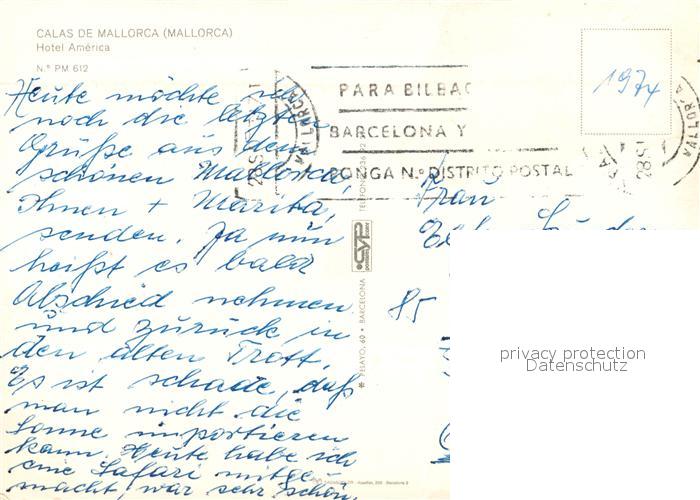 CALAS DE MALLORCA (MALLORCA)
Hotel América
N.º PM 612
Heute möchte ich
noch die letzten
Grüße aus dem
schönen Mallorca,
Ihnen + Marita,
senden. Ja nun
heißt es bald
Abschied nehmen
und zurück in
den alten Trott.
Es ist schade, daß
man nicht die
Sonne importieren
kann. Heute habe ich
eine Safari mitge-
macht, war sehr schön.
PARA BILBAO
BARCELONA Y
PONGA N.º DISTRITO POSTAL
MALLORCA
28 SE
1974
Frau
85
CYP
PELAYO, 60 • BARCELONA
TELEFONO
privacy protection
Datenschutz